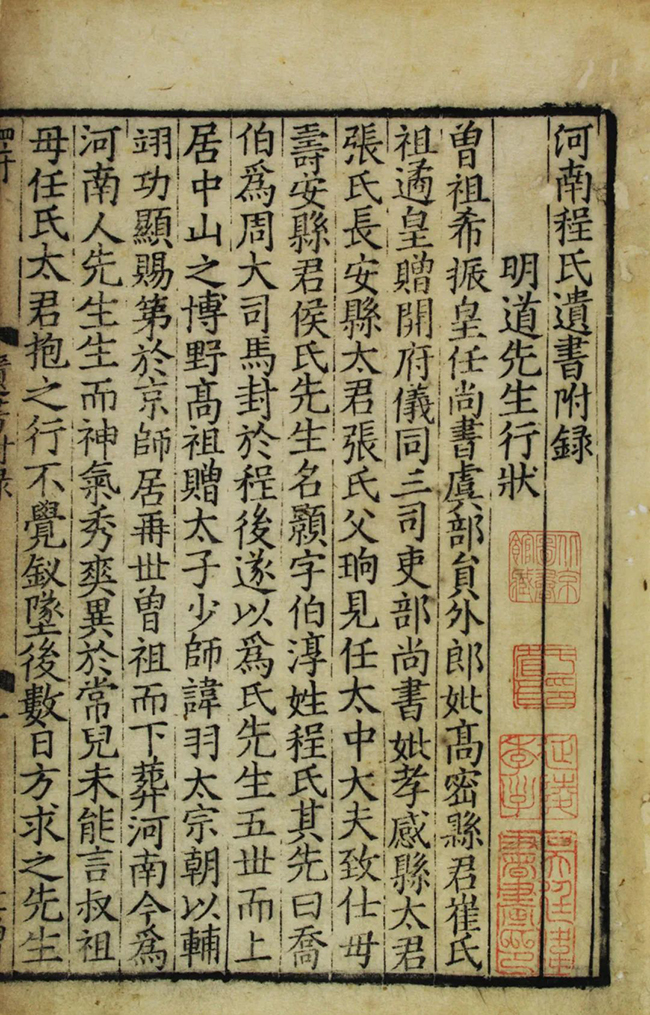 河南程氏遺書附録
明道先生行狀
曾祖希振皇任尚書虞部員外郎妣髙密縣君崔氏
祖遹皇贈開府儀同三司吏部尚書妣孝感縣太君
張氏長安縣太君張氏父珦見任太中大夫致仕母
壽安縣君侯氏先生名顥字伯淳姓程氏其先曰喬
伯爲周大司馬封於程後遂以爲氏先生五丗而上
居中山之博野髙祖贈太子少師諱羽太宗朝以輔
翊功顯賜第於京師居再丗曾祖而下葬河南今爲
河南人先生生而神氣秀爽異於常兒未能言叔祖
母任氏太君抱之行不覺釵墜後數日方求之先生